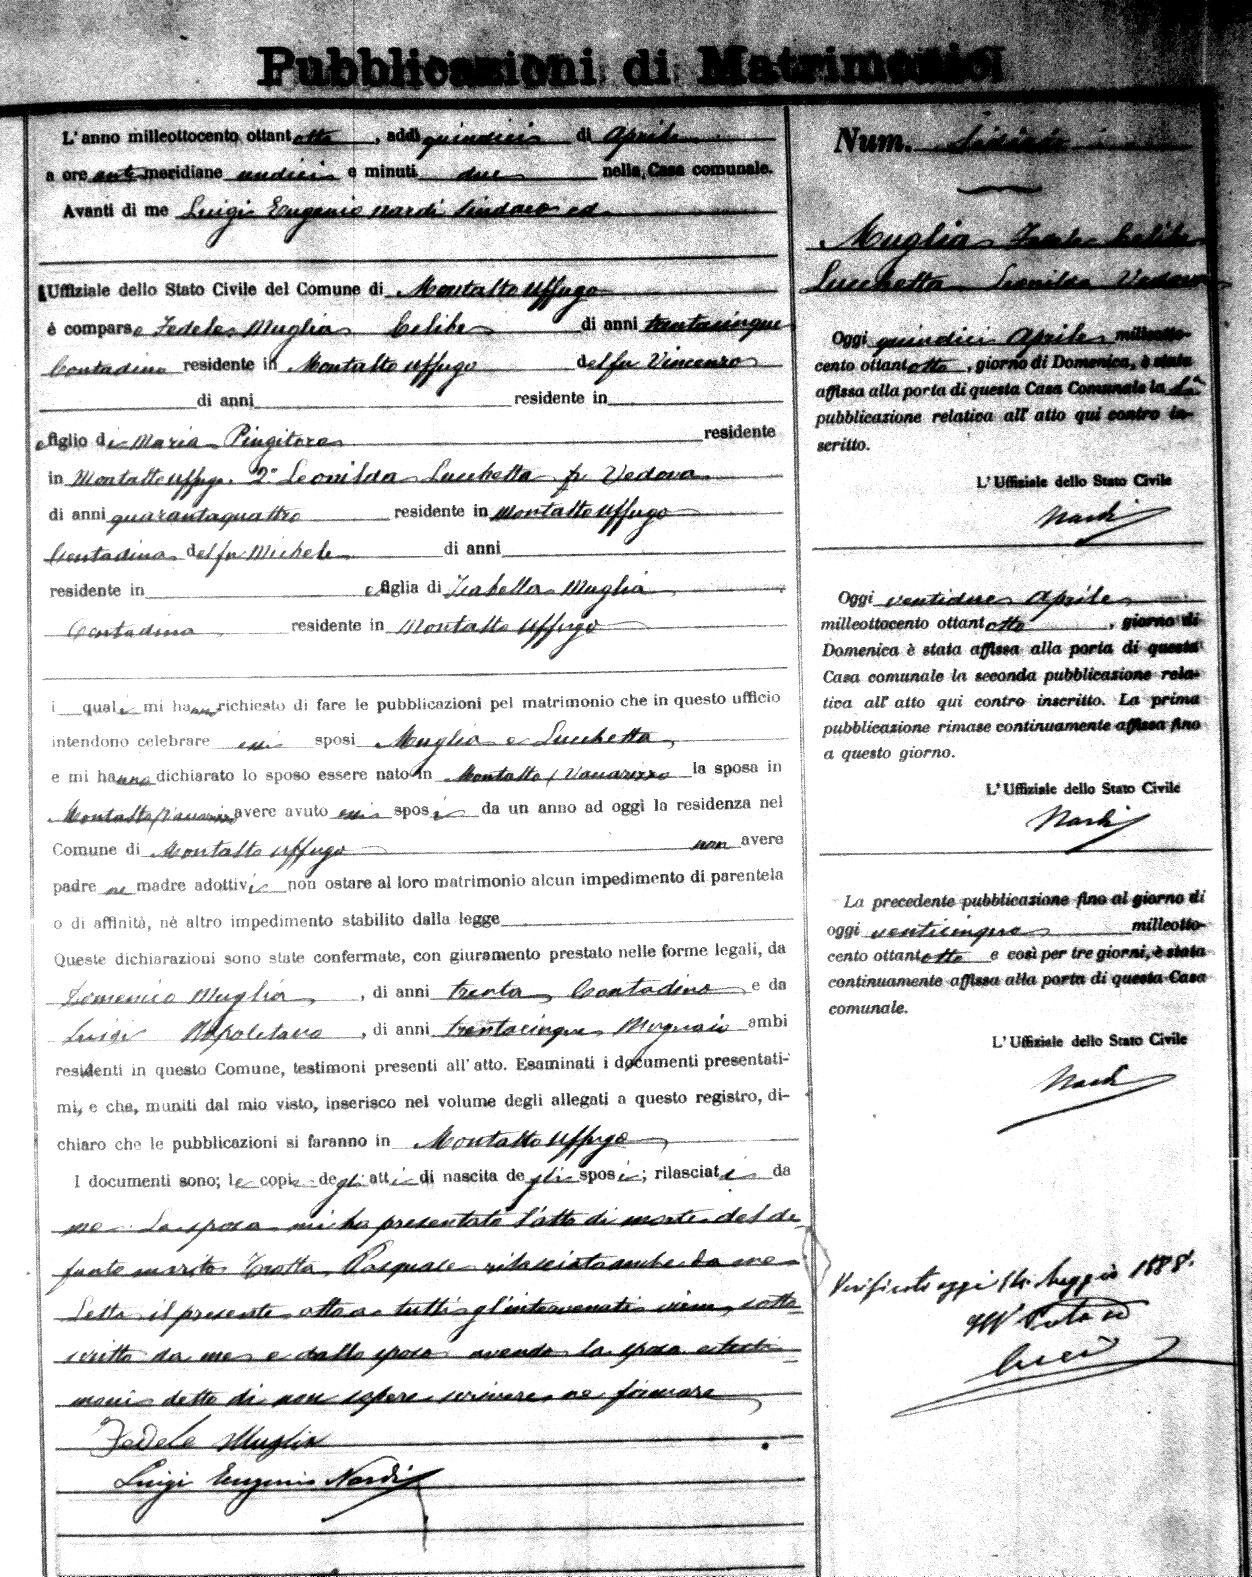 Pubblicazioni di Matrimonio
L'anno milleottocento ottantotto, addi quindici di Aprile
a ore antemeridiane undici e minuti due nella Casa comunale.
Avanti di me Luigi Eugenio Nardi Sindaco ed
Uffiziale dello Stato Civile del Comune di Montalto Uffugo
è comparso Fedele Muglia Celibe di anni trentacinque
Contadino residente in Montalto Uffugo del fu Vincenzo
di anni residente in
e figlio di Maria Pingitore residente
in Montalto Uffugo. 2° Leonilda Lucchetta Vedova
di anni quarantaquattro residente in Montalto Uffugo
Contadina del fu Michele di anni
residente in e figlia di Isabella Muglia
Contadina residente in Montalto Uffugo
i quali mi hanno richiesto di fare le pubblicazioni pel matrimonio che in questo ufficio
intendono celebrare essi sposi Muglia e Lucchetta
e mi hanno dichiarato lo sposo essere nato in Montalto Vaccarizzo la sposa in
Montalto Vaccarizzo avere avuto essi sposi da un anno ad oggi la residenza nel
Comune di Montalto Uffugo non avere
padre ne madre adottivi non ostare al loro matrimonio alcun impedimento di parentela
o di affinità, nè altro impedimento stabilito dalla legge
Queste dichiarazioni sono state confermate, con giuramento prestato nelle forme legali, da
Domenico Muglia, di anni trenta, Contadino e da
Luigi Napoletano, di anni trentacinque Mugnaio ambi
residenti in questo Comune, testimoni presenti all'atto. Esaminati i documenti presentati-
mi, e che, muniti dal mio visto, inserisco nel volume degli allegati a questo registro, di-
chiaro che le pubblicazioni si faranno in Montalto Uffugo
I documenti sono; le copie degli atti di nascita degli sposi; rilasciati da
me. La sposa mi ha presentato l'atto di morte del de
funto marito Trotta Pasquale rilasciato anche da me
Letto il presente atto a tutti gl'intervenuti viene sotto
scritto da me e dallo sposo avendo la sposa e testi
moni detto di non sapere scrivere ne firmare
Fedele Muglia
Luigi Eugenio Nardi
Num.
Muglia Fedele Celibe
Lucchetta Leonilda Vedova
Oggi quindici Aprile milleotto-
cento ottantotto, giorno di Domenica, è stata
affissa alla porta di questa Casa Comunale la 1a
pubblicazione relativa all'atto qui contro in-
scritto.
L'Uffiziale dello Stato Civile
Nardi
Oggi ventidue Aprile
milleottocento ottantotto, giorno di
Domenica è stata affissa alla porta di questa
Casa comunale la seconda pubblicazione rela-
tiva all'atto qui contro inscritto. La prima
pubblicazione rimase continuamente affissa fino
a questo giorno.
L'Uffiziale dello Stato Civile
Nardi
La precedente pubblicazione fino al giorno di
oggi venticinque milleotto-
cento ottantotto e così per tre giorni, è stata
continuamente affissa alla porta di questa Casa
comunale.
L'Uffiziale dello Stato Civile
Nardi
Verificato oggi 14 Maggio 1888.